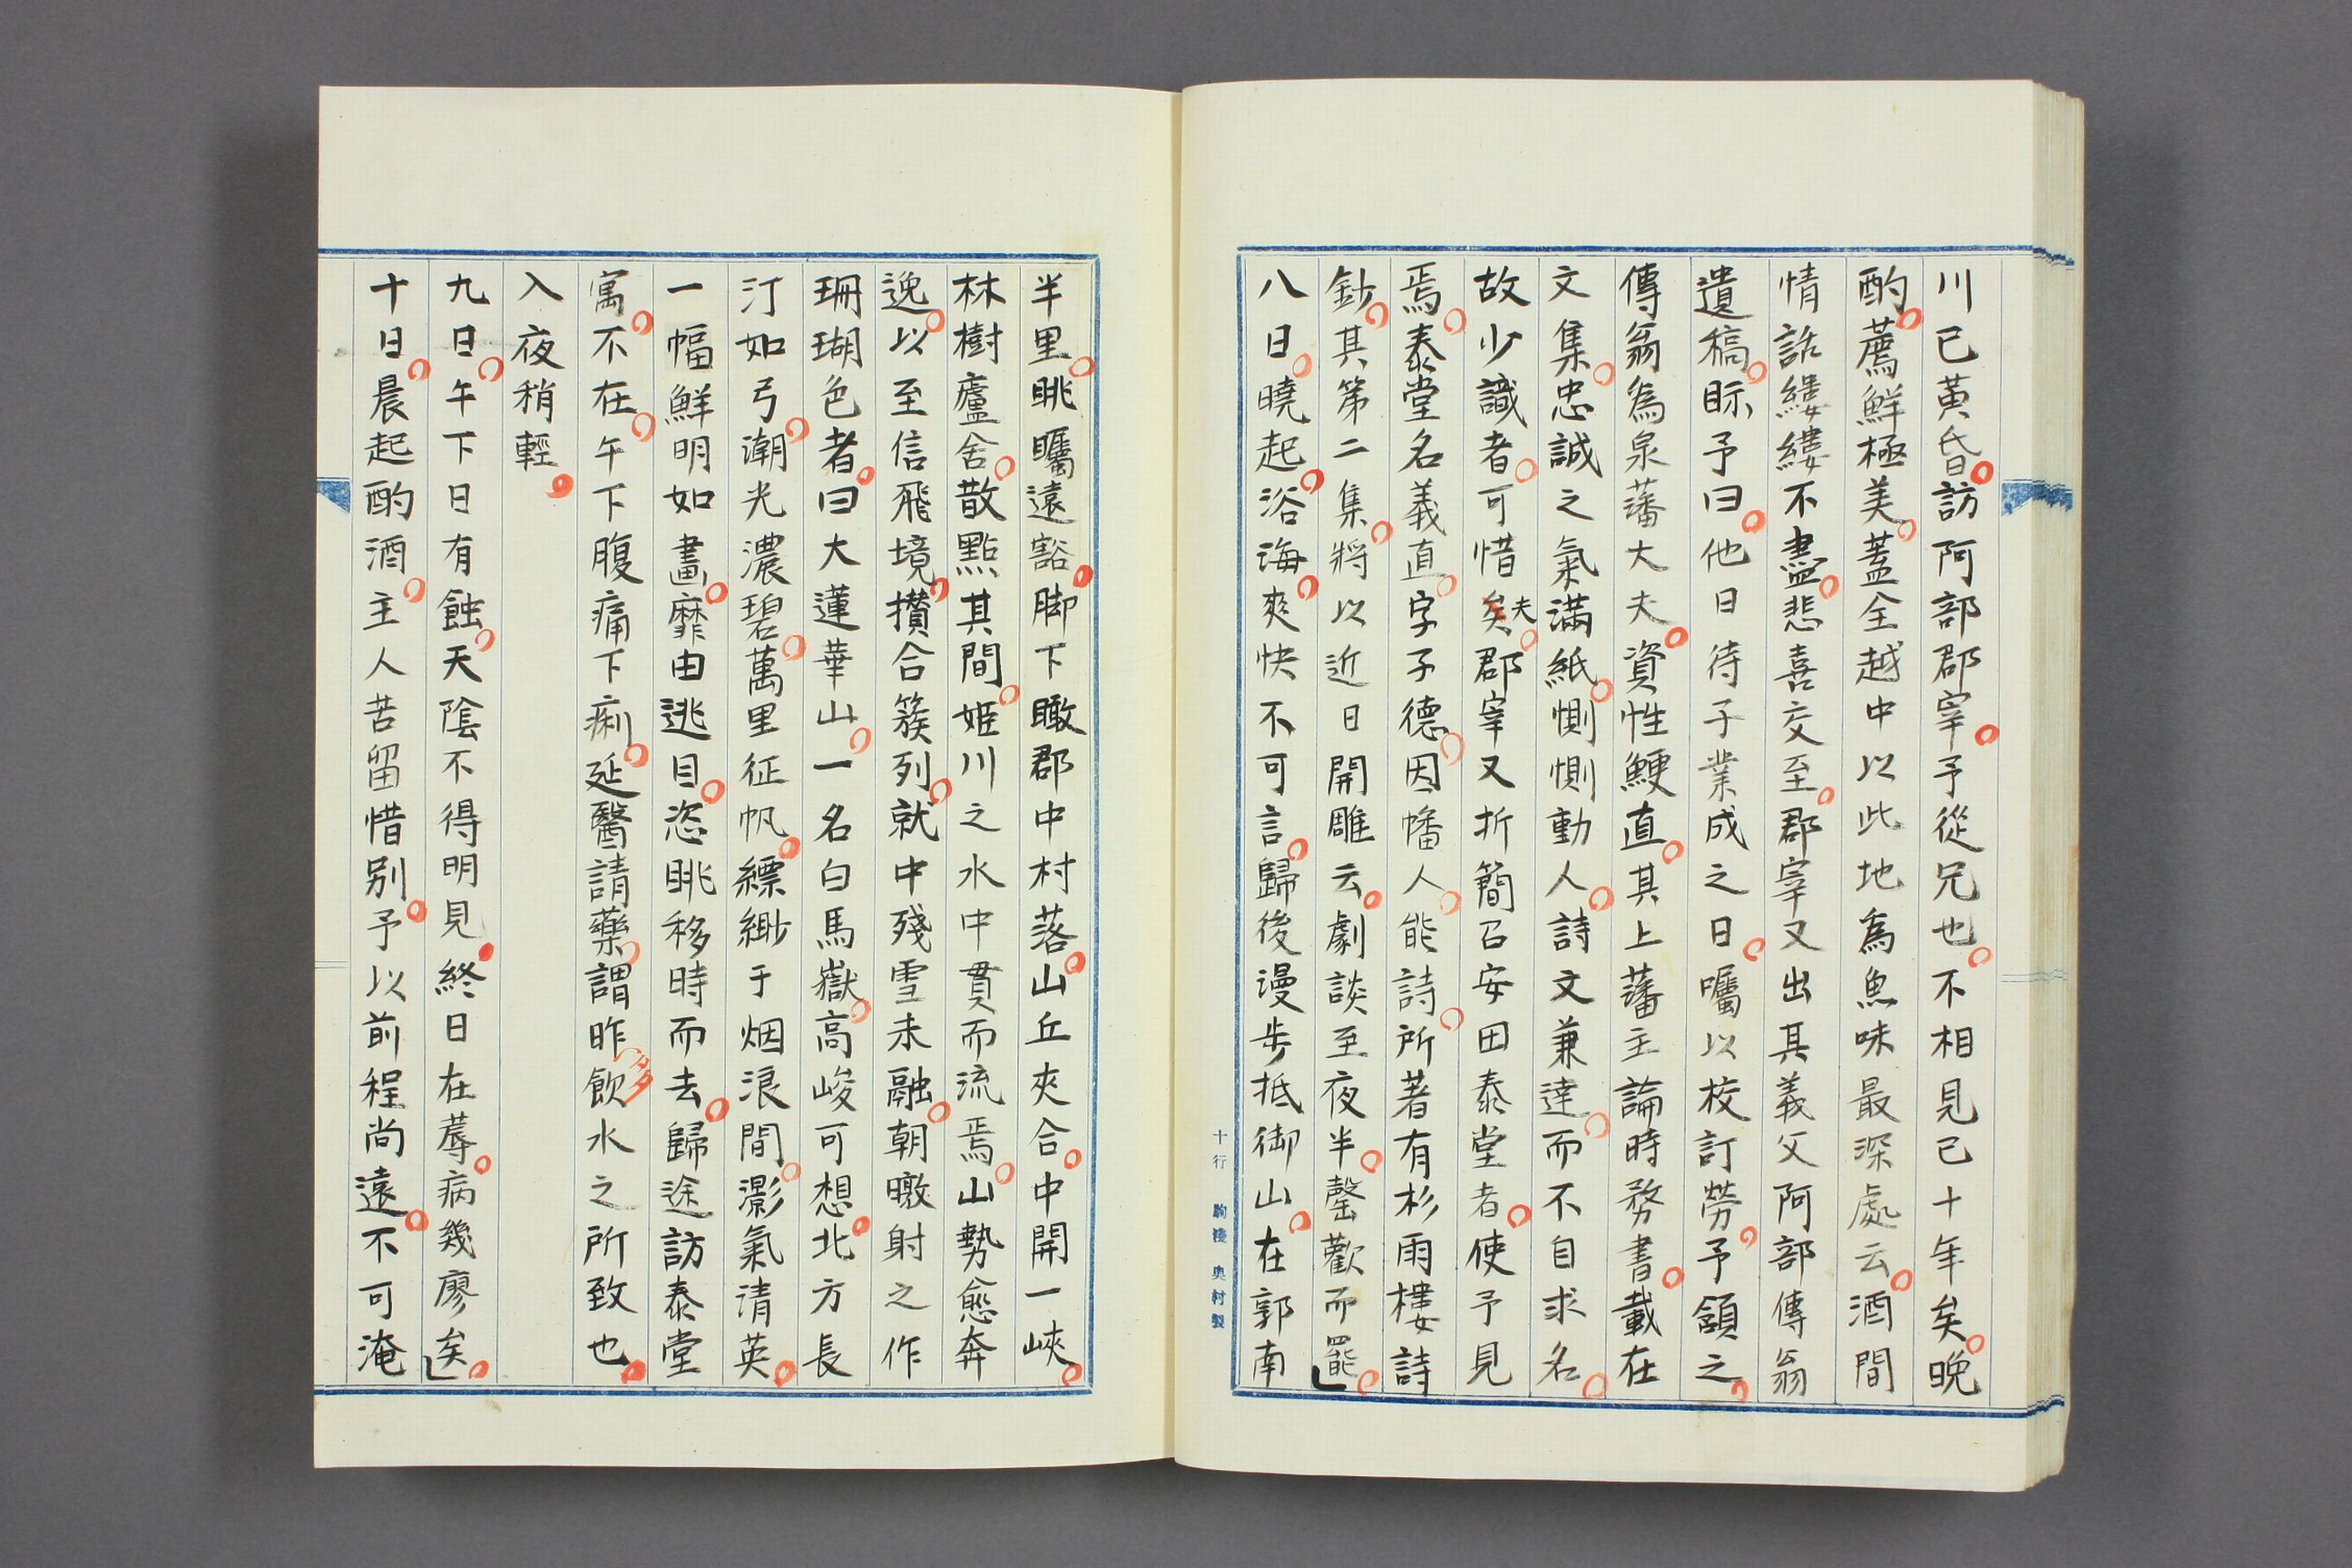 川已黃昏。訪阿部郡宰。予從兄也。不相見已十年矣。晚
酌。薦鮮極美。蓋全越中以此地為魚味最深處云。酒間
情話縷縷不盡。悲喜交至。郡宰又出其義父阿部傳翁
遺稿。眎予曰。他日待子業成之日。囑以校訂勞。予額之。
傳翁為泉藩大夫。資性鯁直。其上藩主論時務書。載在
文集。忠誠之氣滿紙。惻惻動人。詩文兼達。而不自求名。
故少識者。可惜矣夫。郡宰又折簡召安田泰堂者。使予見
焉。泰堂名義直。字子德。因幡人。能詩。所著有杉雨樓詩
鈔。其第二集。將以近日開雕云。劇談至夜半。罄歡而罷。
八日。曉起。浴海。爽快不可言。歸後漫步抵御山。在郭南
十行 駒後 奥村製
半里。眺矚遠豁。脚下瞰郡中村落。山丘夾合。中開一峽。
林樹廬舍。散點其間。姫川之水中貫而流焉。山勢愈奔
逸。以至信飛境。攢合簇列。就中殘雪未融。朝暾射之作
珊瑚色者。曰大蓮華山。一名白馬嶽。高峻可想。北方長
汀如弓。潮光濃碧。萬里征帆。縹緲于烟浪間。灝氣清英。
一幅鮮明如畫。靡由逃目。恣眺移時而去。歸途訪泰堂
寓。不在。午下腹痛下痢。延醫請藥。謂昨飲水之所致也。
入夜稍輕。
九日。午下日有蝕。天陰不得明見。終日在蓐。病幾廖矣。
十日。晨起酌酒。主人苦留惜別。予以前程尚遠。不可淹